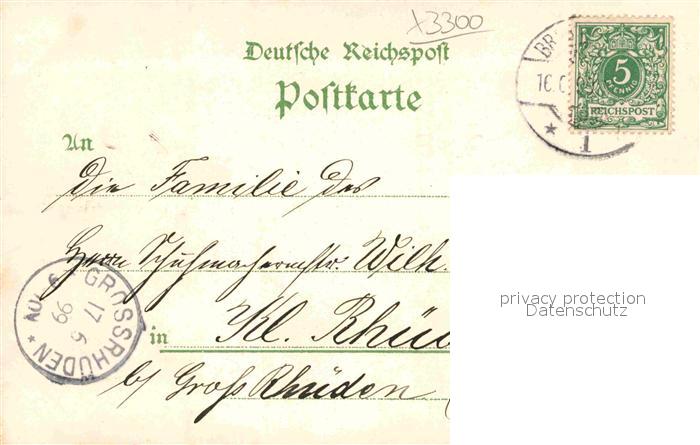 x3300
Deutsche Reichspost
Postkarte
BR
16.
1
5
PFENNIG
REICHSPOST
An
die Familie des
Herrn Schuhmachermstr. Wilh.
in Kl. Rhüd
b/ Groß Rhüden
GROSSRHÜDEN
17 6
99
privacy protection
Datenschutz